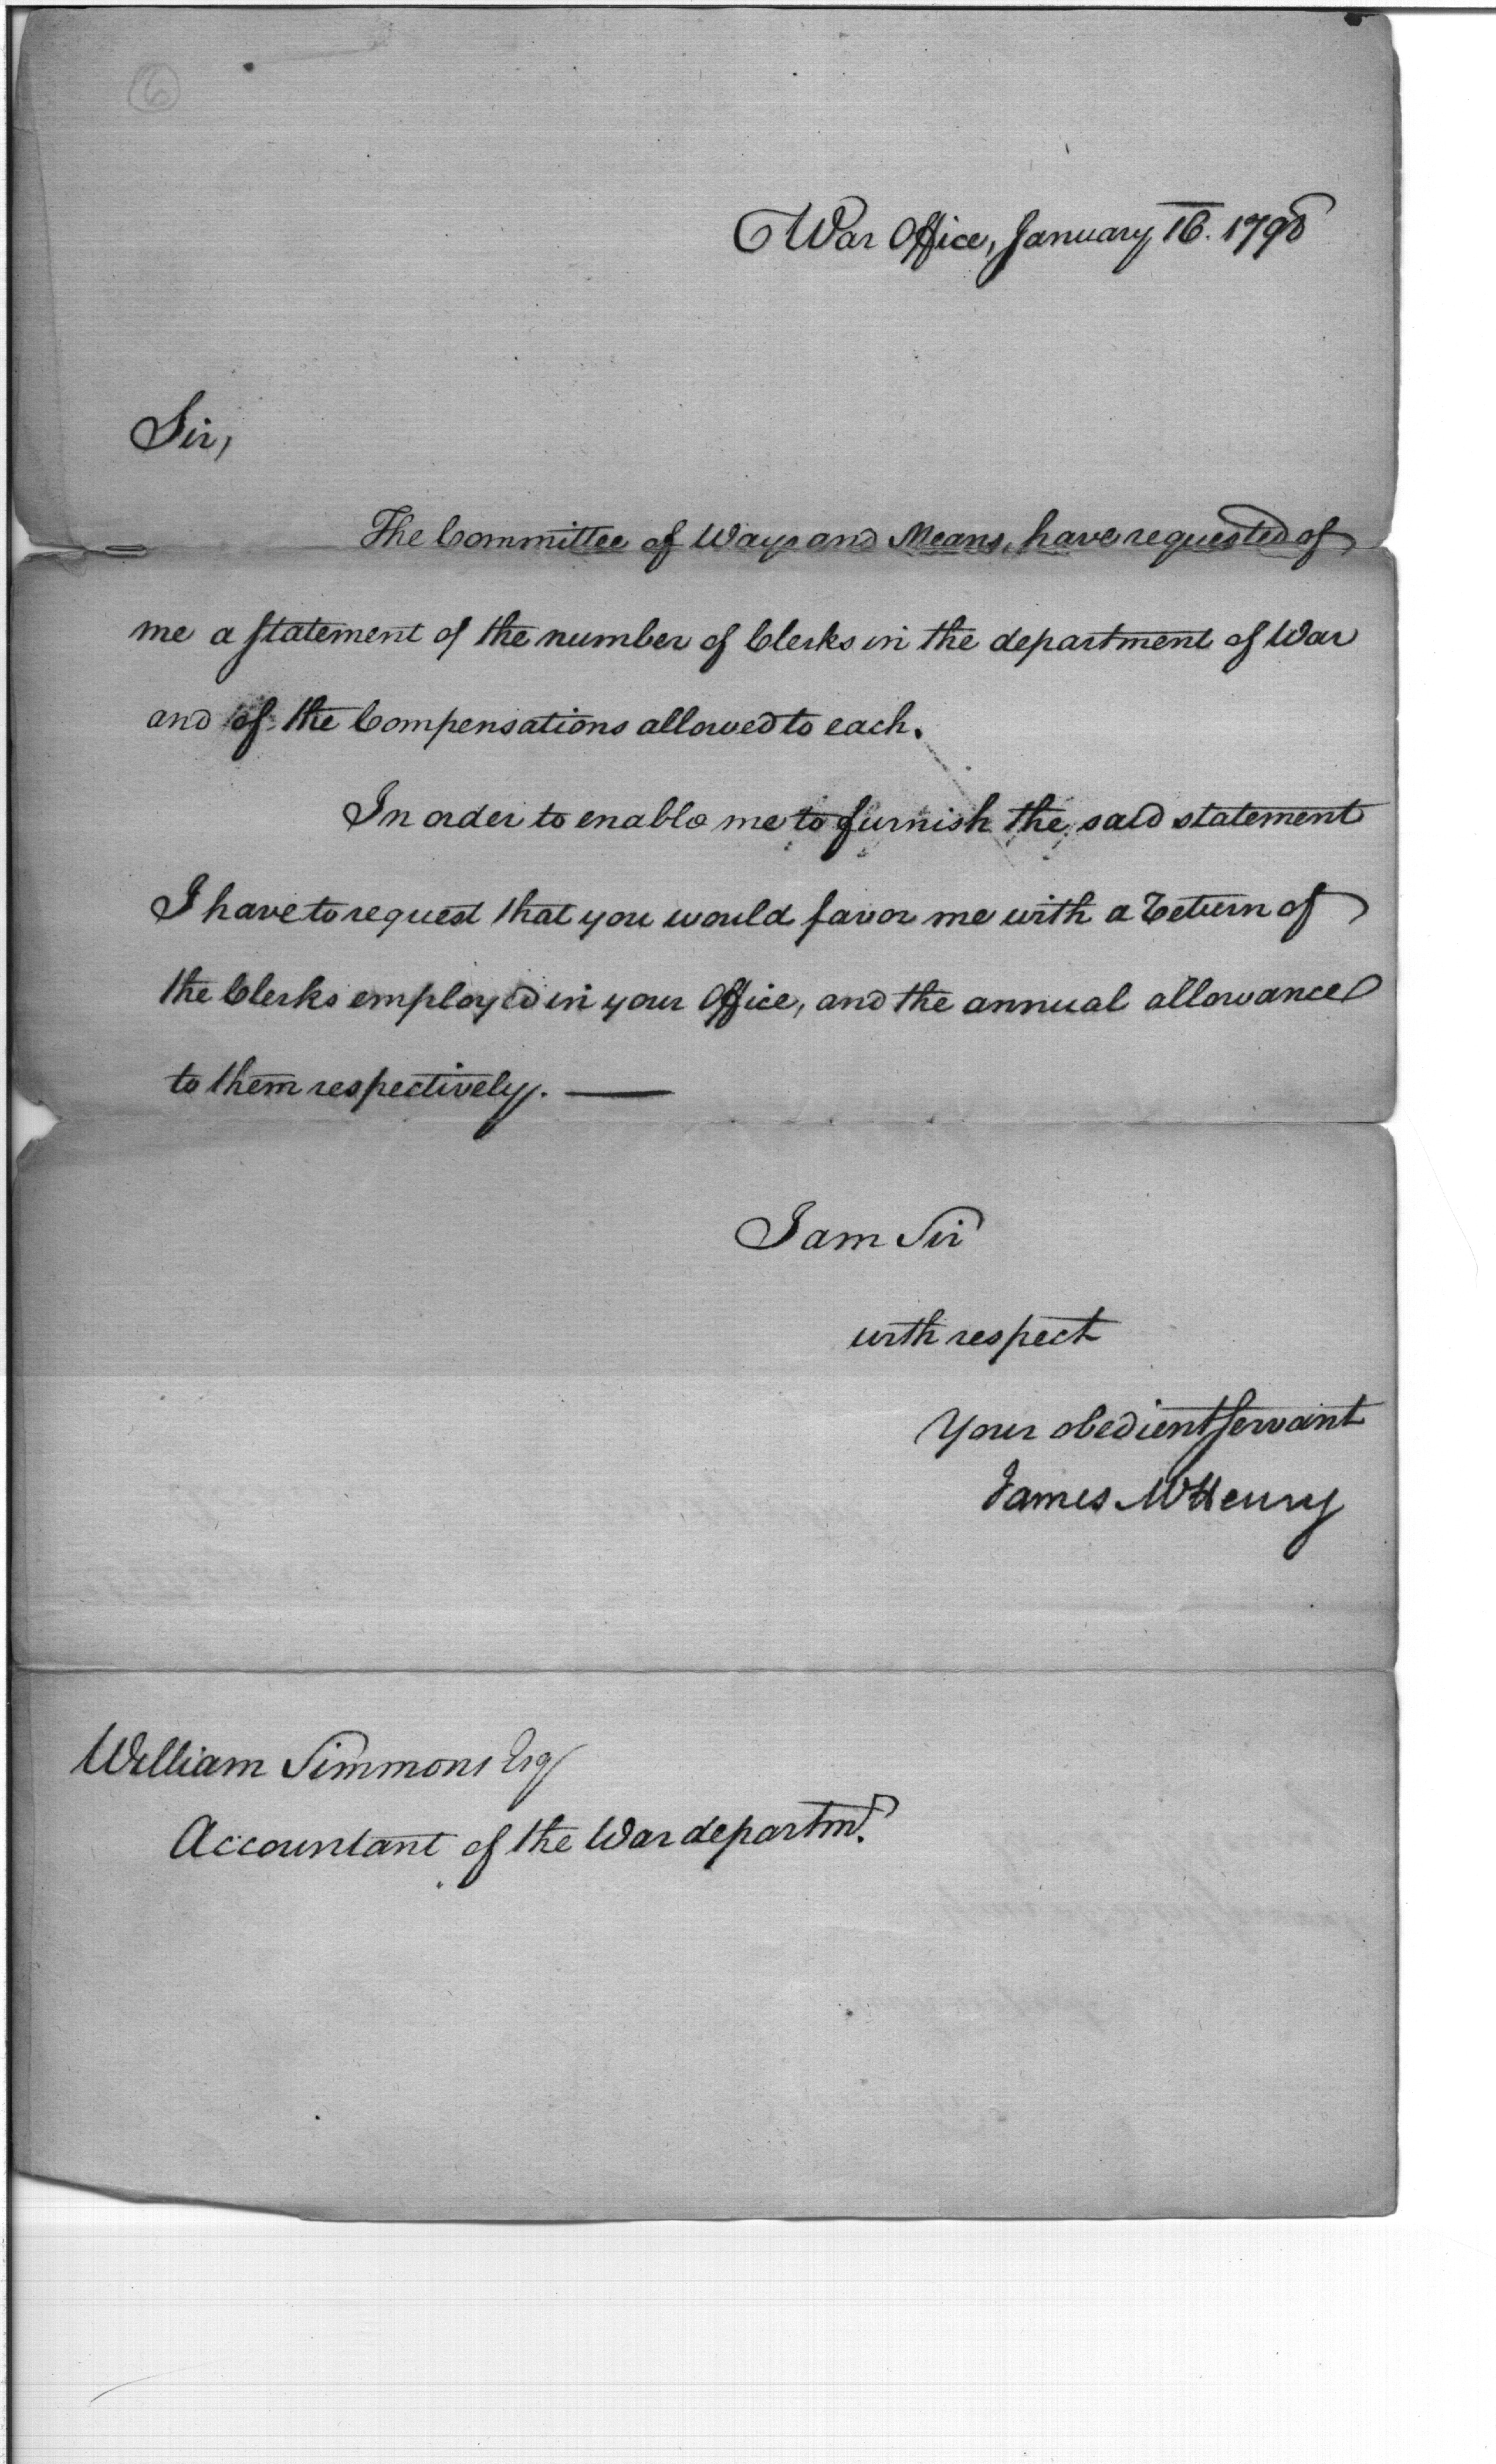 6
War Office, January 16. 1798
Sir,
The Committee of Ways and Means, have requested of
me a statement of the number of Clerks in the department of War
and of the Compensations allowed to each.
In order to enable me to furnish the said statement
I have to request that you would favor me with a Return of
the Clerks employed in your Office, and the annual allowance
to them respectively. —
I am Sir
with respect
Your obedient servant
James McHenry
William Simmons Esq
Accountant of the War departmt.